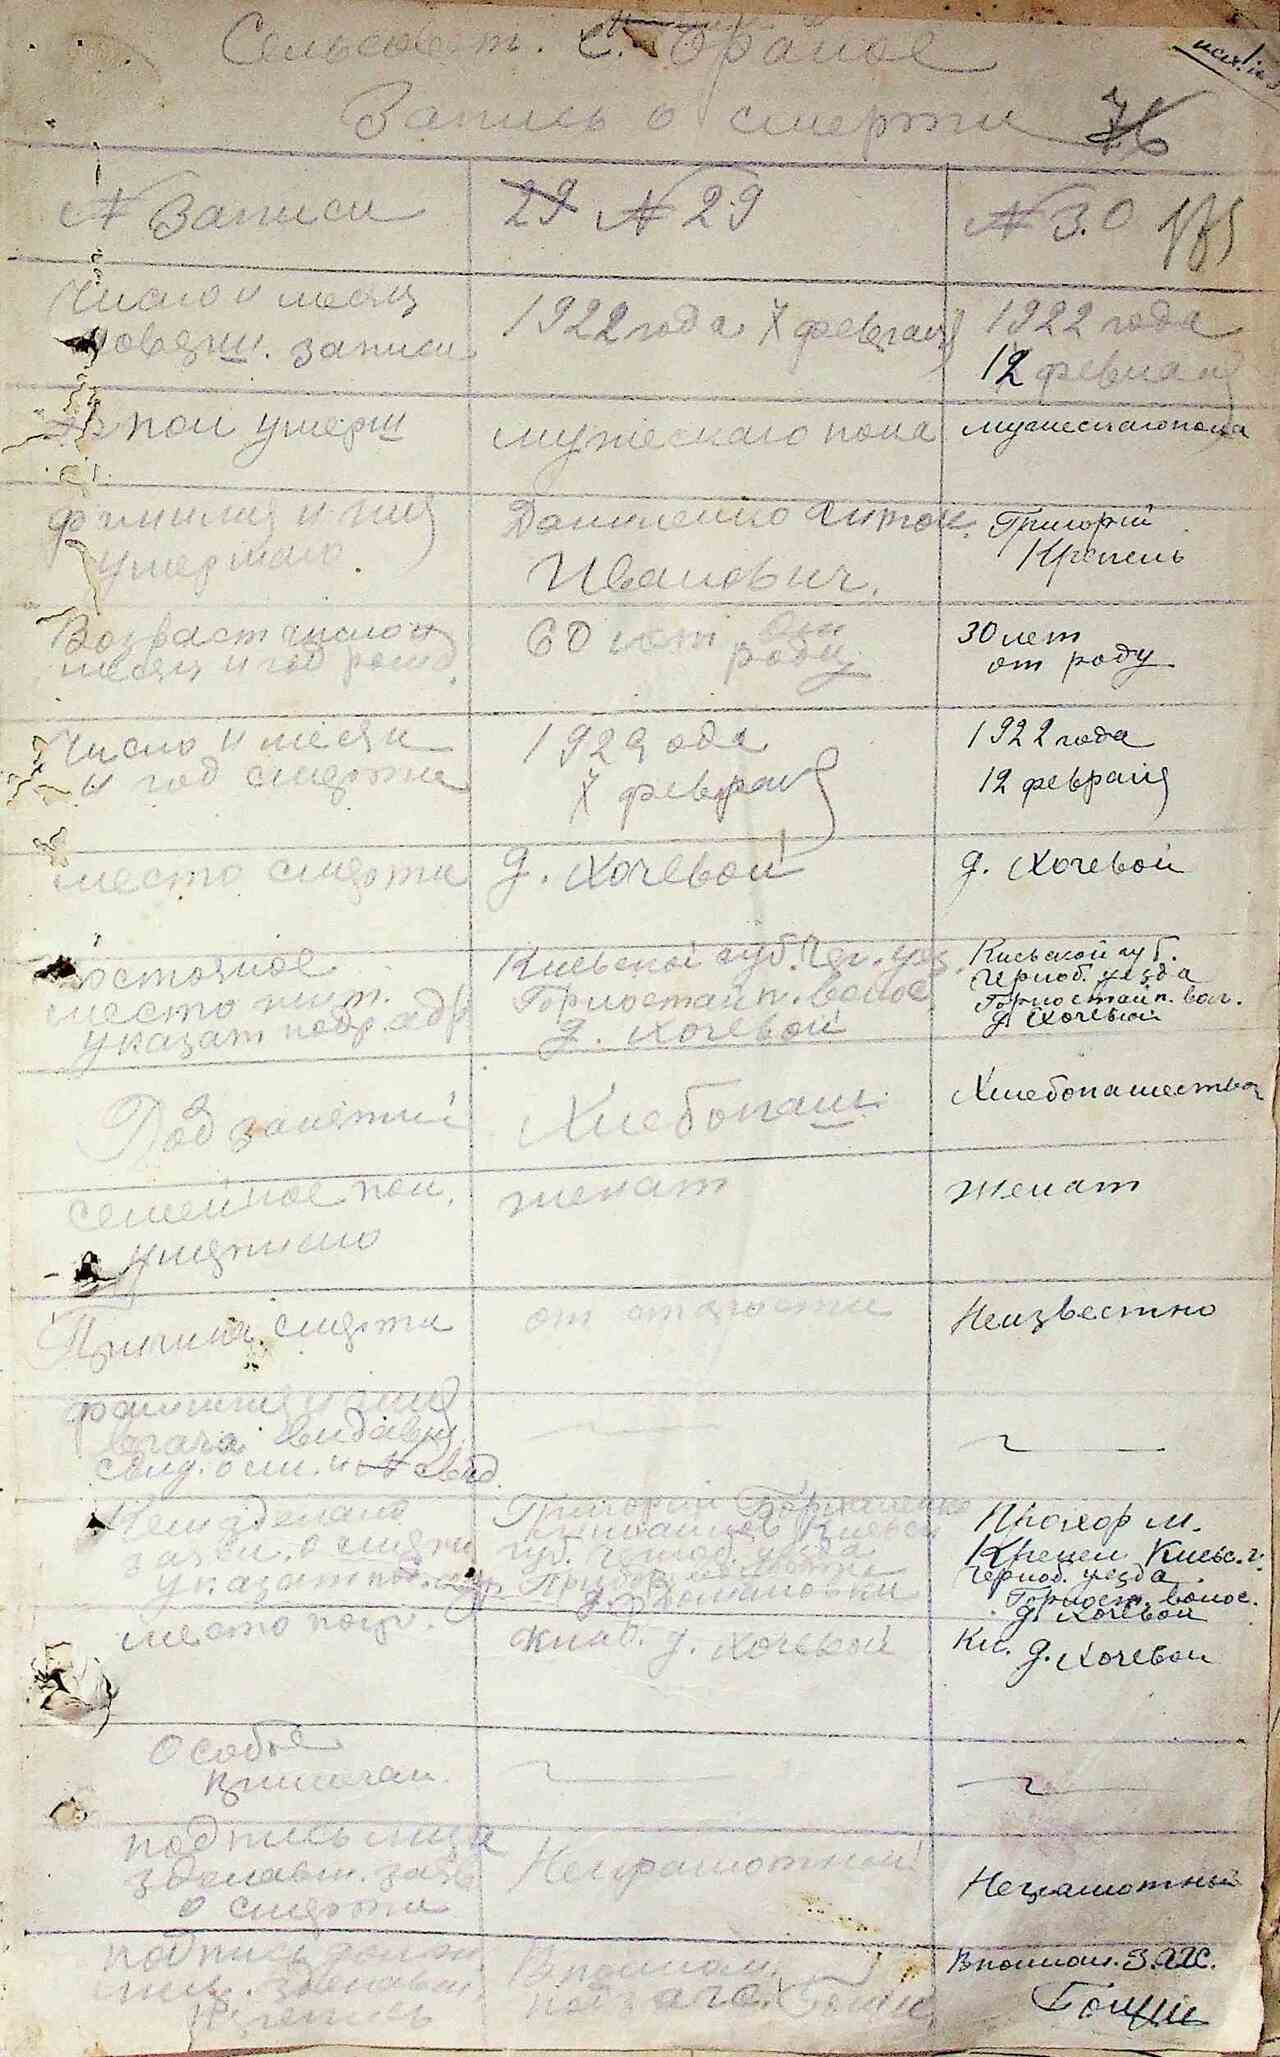 Сельсовет. С. Ораное
Запись о смерти 76
№ Записи
29 № 29
№ 30 175
Число и месяц
совершш. записи
1922 года 7 февраля
1922 года
12 февраля
пол умерш
мужескаго пола
мужескаго пола
фамилия и имя
умершаго
Даниленко Антон
Иванович.
Григорий
Крепель
Возраст число и
месяц и год рожд.
60 лет от
роду
30 лет
от роду
Число и месяц
и год смерти
192 года
7 февраля
1922 года
12 февраля
место смерти
д. Хочевой
д. Хочевой
место жит.
указат подр. адр
Киевской губ. Чер. уез.
Горностайп. волос
д. Хочевой
Киевской губ.
Черноб. уезда
Горностайп. вол.
д. Хочевой
Род занятий
Хлебопаш.
Хлебопашество
семейное пол.
умершаго
женат
женат
Причина смерти
от старости
Неизвестно
фамилия и имя
врача видавш.
свид. о см. и № свид.
Кем зделано
заявл. о смерти
Григорий
губ. Черноб. уезда
Прохор М.
Крепел Киевс. г.
Черноб. уезда
Горност. волос.
д. Хочевой
место погр.
клад. д. Хочевой
Кл. д. Хочевой
Особые
примечан.
подпись лица
зделавш. заяв
о смерти
Неграмотный
Неграмотный
подпись долж
зделавш.
запись
В помощ.
под ЗАГС.
В помощ. З.АГС.